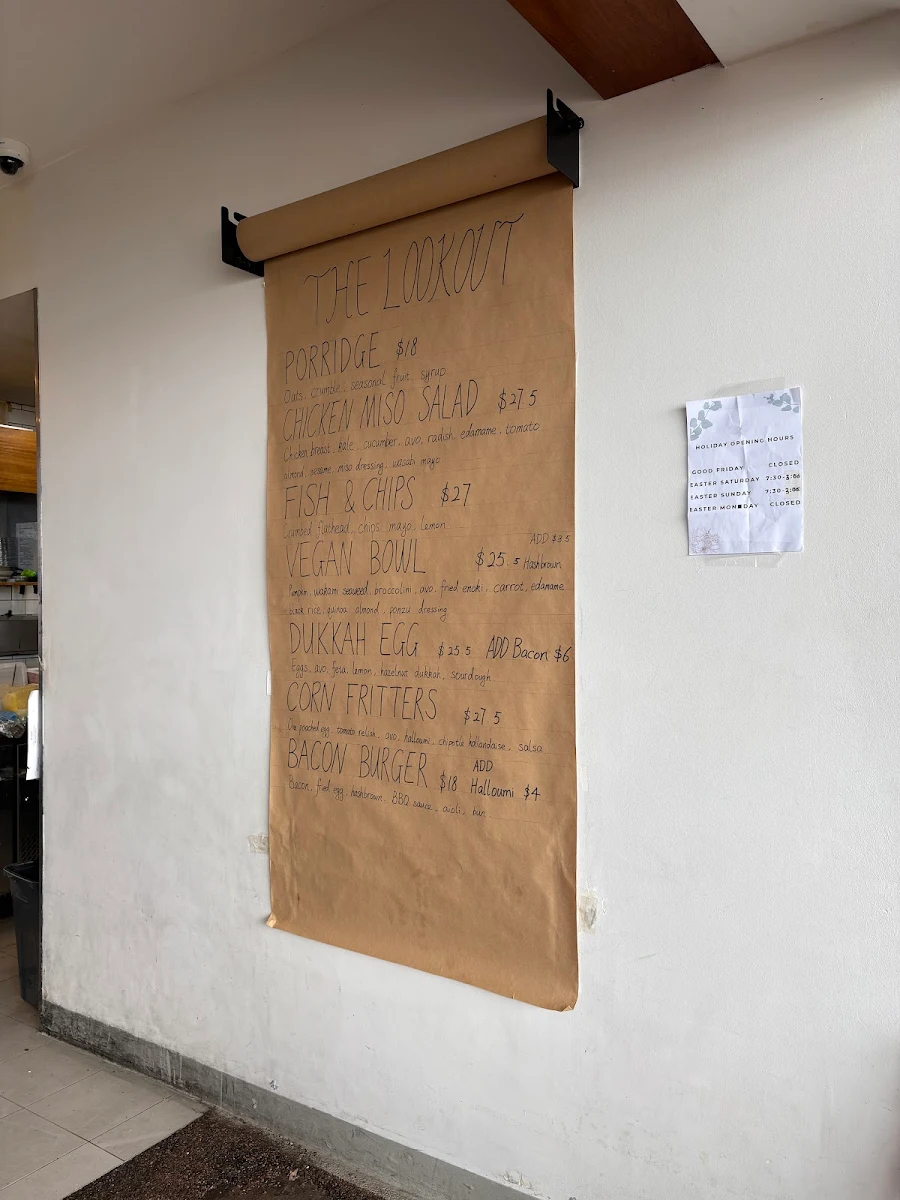 THE LOOKOUT
PORRIDGE $18
Oats, crumble, seasonal fruit, syrup
CHICKEN MISO SALAD $27.5
Chicken breast, kale, cucumber, avo, radish, edamame, tomato
almond, sesame miso dressing, wasabi mayo
FISH & CHIPS $27
Crumbed flathead, chips, mayo, lemon
ADD $3.5
VEGAN BOWL $25.5 Hashbrown
Pumpkin, wakami seaweed, broccolini, avo, fried enoki, carrot, edamame
black rice, quinoa, almond, ponzu dressing
DUKKAH EGG $25.5 ADD Bacon $6
Eggs, avo, feta, lemon, hazelnut dukkah, sourdough
CORN FRITTERS $27.5
One poached egg, tomato relish, avo, halloumi, chipotle hollandaise, salsa
ADD
BACON BURGER $18 Halloumi $4
Bacon, fried egg, hashbrown, BBQ sauce, aioli, bun
HOLIDAY OPENING HOURS
GOOD FRIDAY CLOSED
EASTER SATURDAY 7:30-
EASTER SUNDAY 7:30-
EASTER MONDAY CLOSED